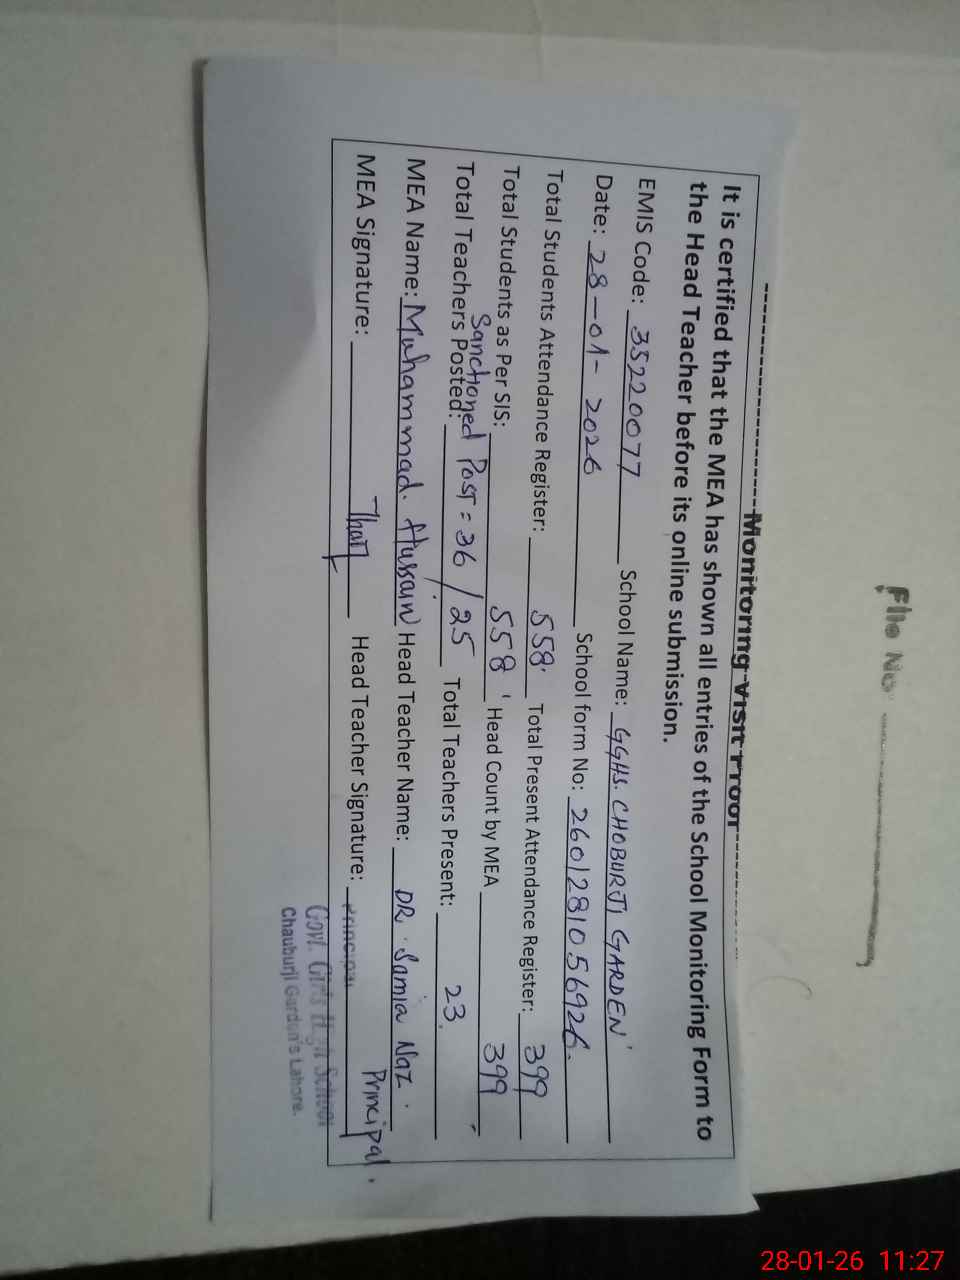 File No
Monitoring Visit Proof
It is certified that the MEA has shown all entries of the School Monitoring Form to
the Head Teacher before its online submission.
EMIS Code: 35220077 School Name: GGHS. CHOBURJI GARDEN
Date: 28-01-2026 School form No: 2601281056926.
Total Students Attendance Register: 558 Total Present Attendance Register: 399
Total Students as Per SIS: 558 Head Count by MEA 399
Sanctioned Post = 36 / 25
Total Teachers Posted: Total Teachers Present: 23
MEA Name: Muhammad. Hussain Head Teacher Name: DR. Samia Naz.
MEA Signature: Head Teacher Signature: Principal.
Principal
Govt. Girls High School
Chauburji Garden's Lahore.
28-01-26 11:27